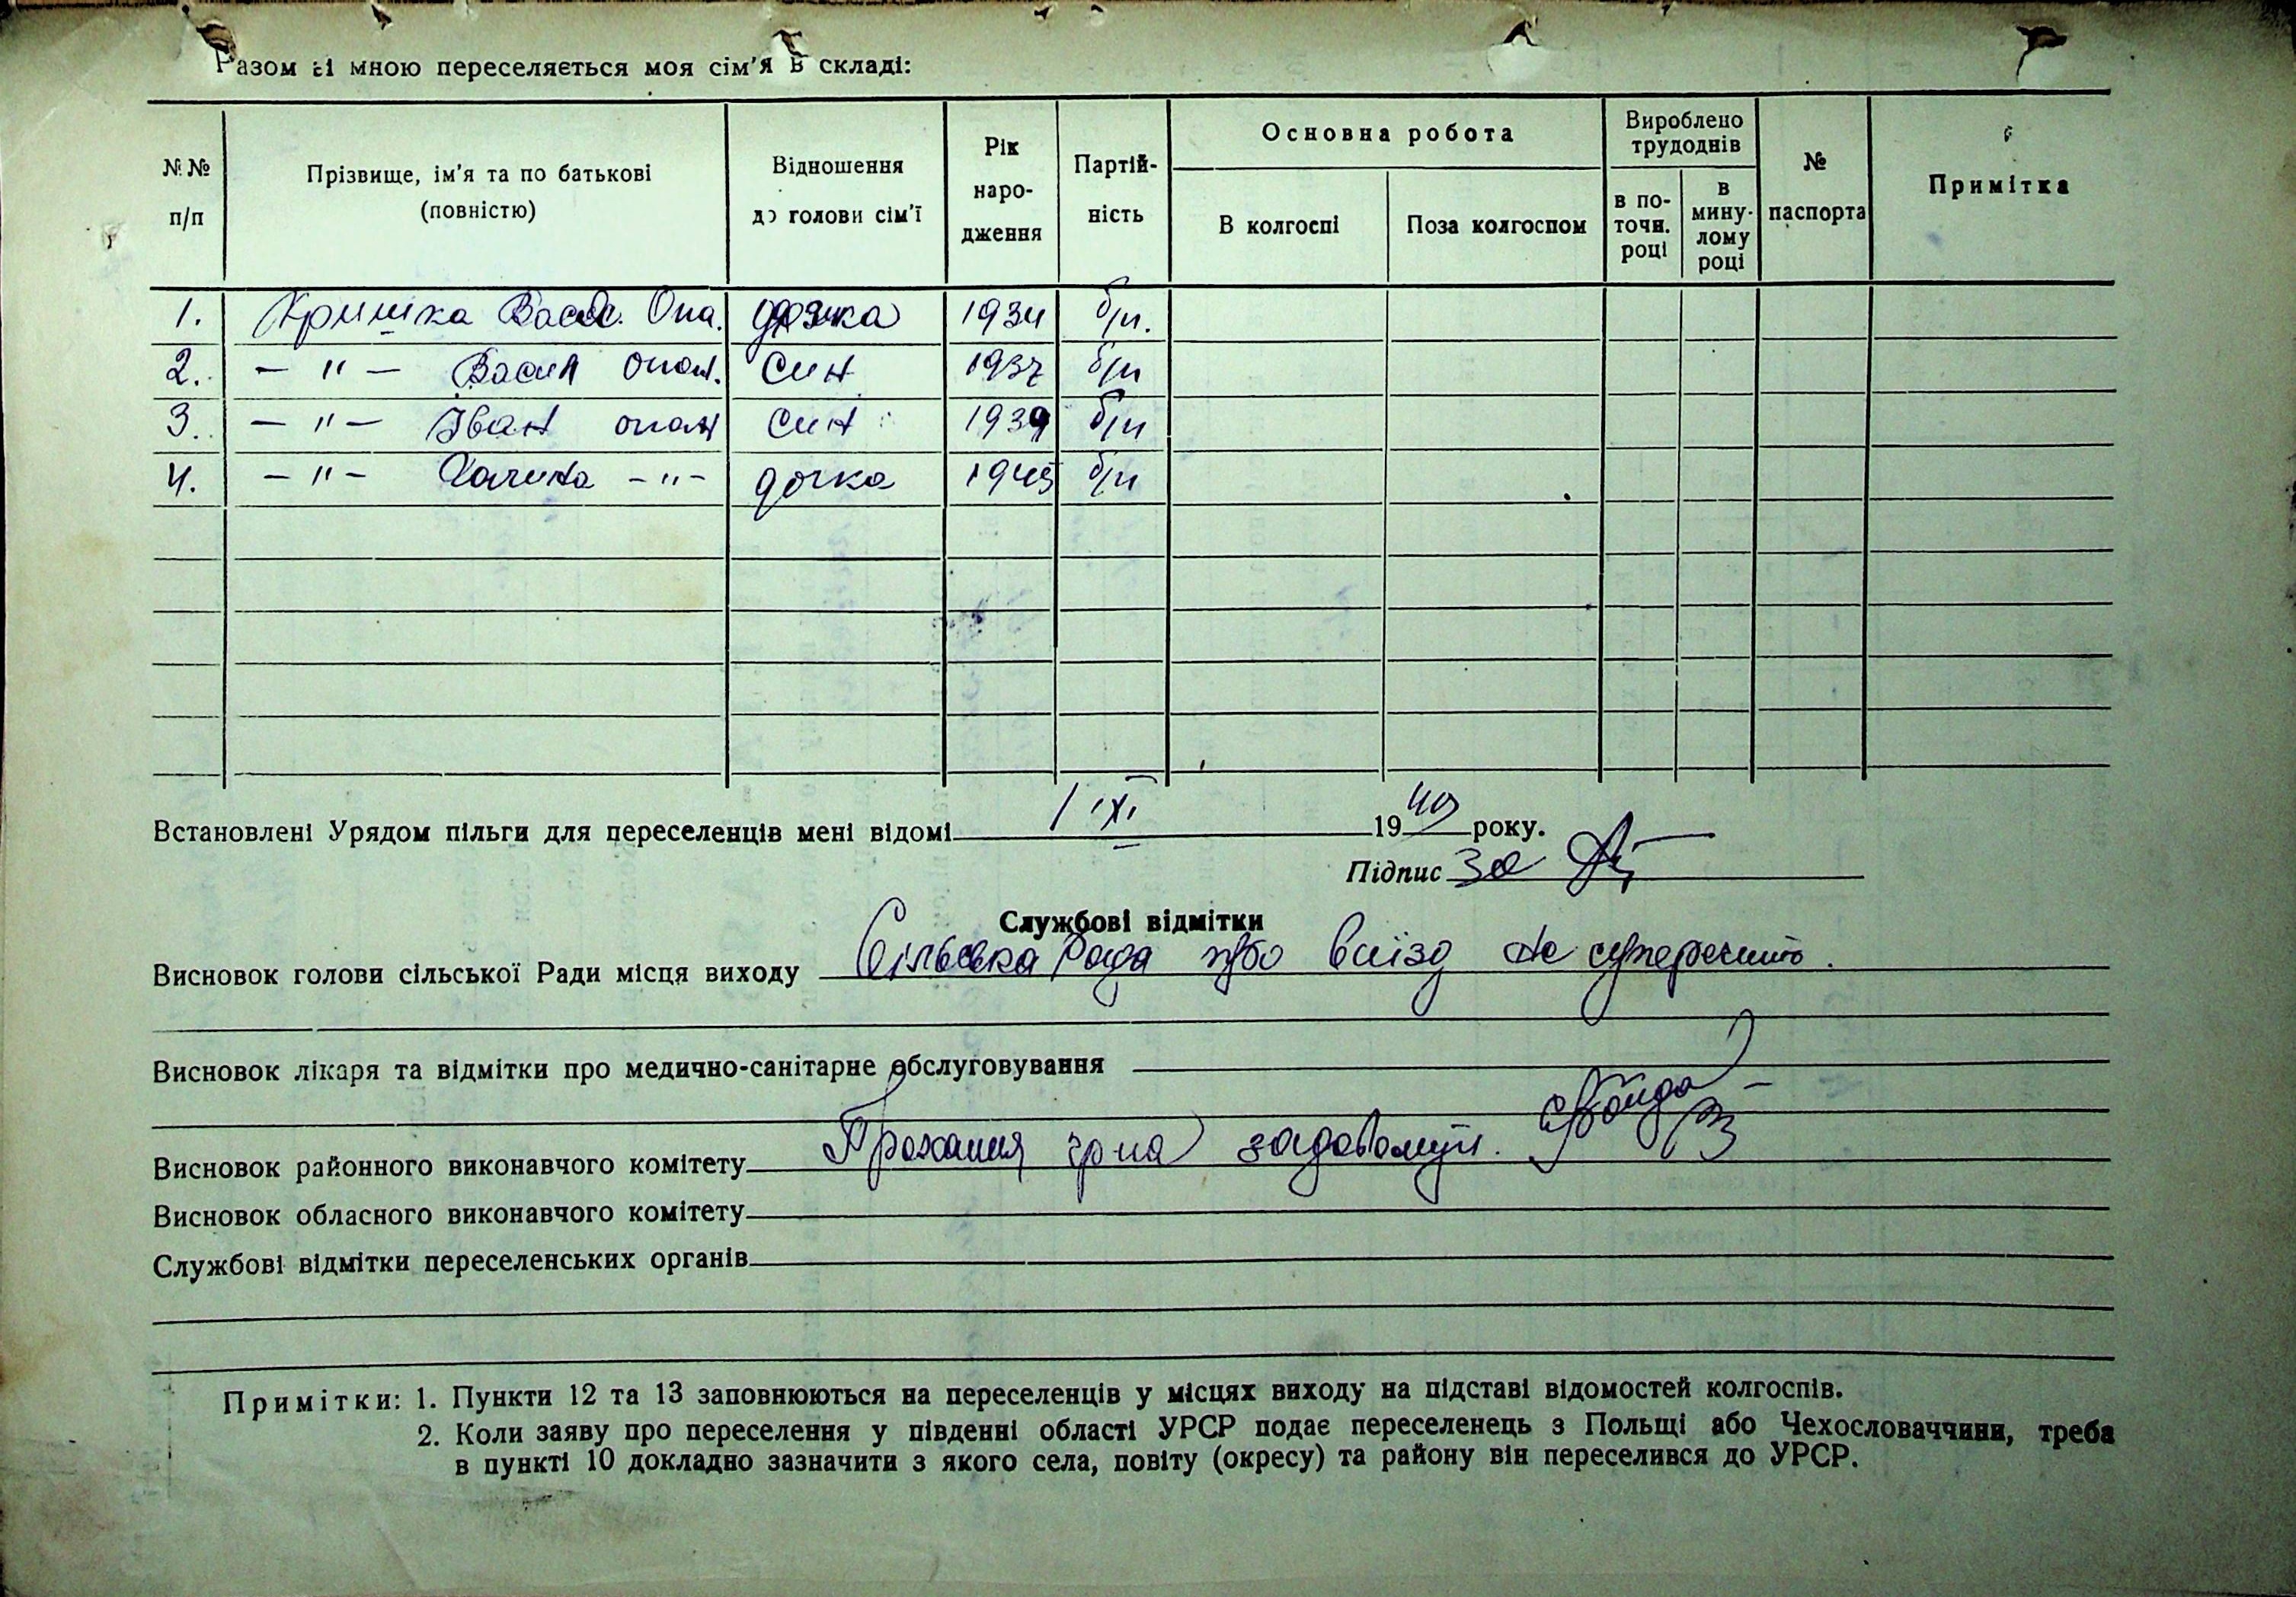 Разом зі мною переселяється моя сім'я в складі:
№№ п/п
Прізвище, ім'я та по батькові (повністю)
Відношення до голови сім'ї
Рік народження
Партійність
Основна робота
В колгоспі
Поза колгоспом
Вироблено трудоднів
в поточн. році
в минулому році
№ паспорта
Примітка
1. Кришка Опа. дочка 1934 б/п.
2. — " — Васил опан. син 1937 б/п
3. — " — Іван опан син 1939 б/п
4. — " — Галина — " — дочка 1945 б/п
Встановлені Урядом пільги для переселенців мені відомі 1 ХІ 1949 року.
Підпис за
Службові відмітки
Висновок голови сільської Ради місця виходу Сільська Рада про виїзд не суперечить.
Висновок лікаря та відмітки про медично-санітарне обслуговування
Висновок районного виконавчого комітету Прохання гр-на задовольнити.
Висновок обласного виконавчого комітету
Службові відмітки переселенських органів
Примітки: 1. Пункти 12 та 13 заповнюються на переселенців у місцях виходу на підставі відомостей колгоспів.
2. Коли заяву про переселення у південні області УРСР подає переселенець з Польщі або Чехословаччини, треба
в пункті 10 докладно зазначити з якого села, повіту (окресу) та району він переселився до УРСР.